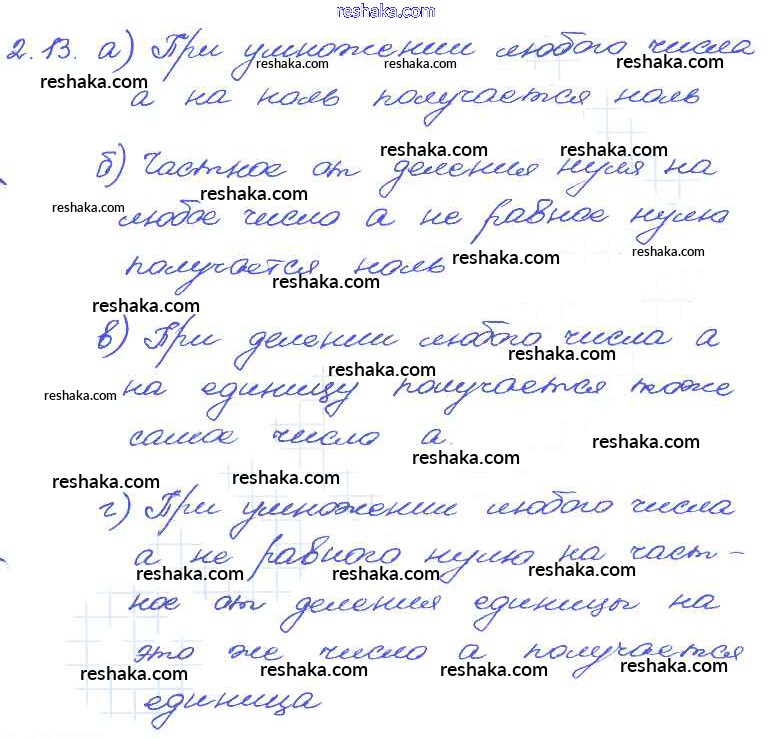 reshaka.com
2.13. а) При умножении любого числа
reshaka.com reshaka.com reshaka.com reshaka.com
а на ноль получается ноль
reshaka.com reshaka.com
б) Частное от деления нуля на
reshaka.com reshaka.com
любое число а не равное нулю
reshaka.com reshaka.com
получается ноль
reshaka.com
reshaka.com
в) При делении любого числа а
reshaka.com reshaka.com
на единицу получается тоже
reshaka.com
самое число а.
reshaka.com reshaka.com
reshaka.com reshaka.com
г) При умножении любого числа
а не равного нулю на част-
reshaka.com reshaka.com reshaka.com
ное от деления единицы на
это же число а получается
reshaka.com reshaka.com reshaka.com reshaka.com
единица